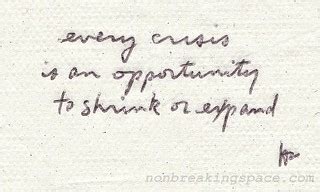 every crisis
is an opportunity
to shrink or expand
nonbreakingspace.com